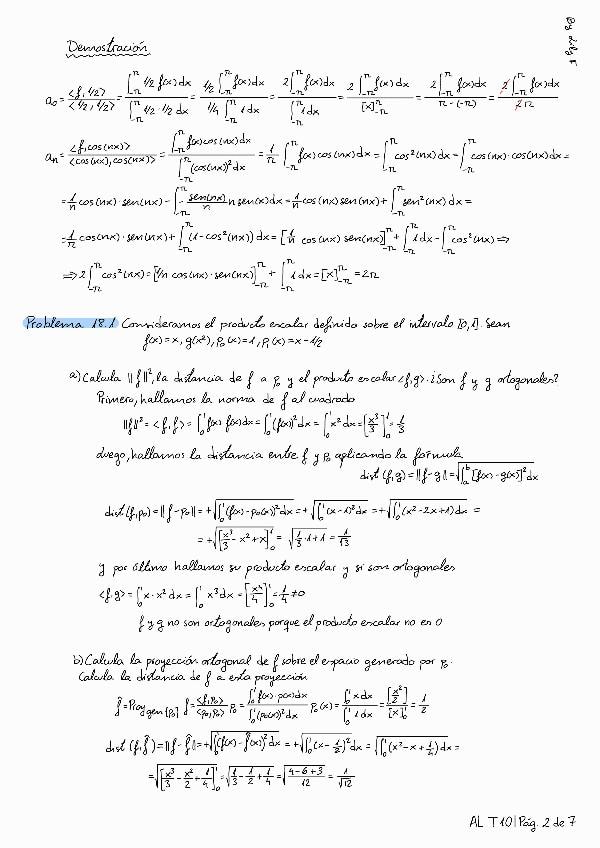 Demostración
a₀ = <f, 1/2> / <1/2, 1/2> = ∫_{-π}^{π} 1/2 f(x) dx / ∫_{-π}^{π} 1/2 · 1/2 dx = 1/2 ∫_{-π}^{π} f(x) dx / 1/4 ∫_{-π}^{π} 1 dx = 2 ∫_{-π}^{π} f(x) dx / ∫_{-π}^{π} 1 dx = 2 ∫_{-π}^{π} f(x) dx / [x]_{-π}^{π} = 2 ∫_{-π}^{π} f(x) dx / π - (-π) = 2 ∫_{-π}^{π} f(x) dx / 2π
aₙ = <f, cos(nx)> / <cos(nx), cos(nx)> = ∫_{-π}^{π} f(x) cos(nx) dx / ∫_{-π}^{π} (cos(nx))² dx = 1/π ∫_{-π}^{π} f(x) cos(nx) dx = ∫_{-π}^{π} cos²(nx) dx = ∫_{-π}^{π} cos(nx) · cos(nx) dx =
= 1/n cos(nx) · sen(nx) - ∫_{-π}^{π} - sen(nx)/n n sen(x) dx = 1/n cos(nx) sen(nx) + ∫_{-π}^{π} sen²(nx) dx =
= 1/n cos(nx) · sen(nx) + ∫_{-π}^{π} (1 - cos²(nx)) dx = [1/n cos(nx) sen(nx)]_{-π}^{π} + ∫_{-π}^{π} 1 dx - ∫_{-π}^{π} cos²(nx) ⇒
⇒ 2 ∫_{-π}^{π} cos²(nx) = [1/n cos(nx) · sen(nx)]_{-π}^{π} + ∫_{-π}^{π} 1 dx = [x]_{-π}^{π} = 2π
Problema 18.1 Consideramos el producto escalar definido sobre el intervalo [0,1]. Sean
f(x) = x, g(x²), p₀(x) = 1, p₁(x) = x - 1/2
a) Calcula ||f||², la distancia de f a p₀ y el producto escalar <f, g>. ¿Son f y g ortogonales?
Primero, hallamos la norma de f al cuadrado
||f||² = <f, f> = ∫₀¹ f(x) · f(x) dx = ∫₀¹ (f(x))² dx = ∫₀¹ x² dx = [x³/3]₀¹ = 1/3
Luego, hallamos la distancia entre f y p₀ aplicando la fórmula
dist (f, g) = ||f - g|| = √(∫_a^b [f(x) - g(x)]² dx)
dist (f, p₀) = ||f - p₀|| = +√(∫₀¹ (f(x) - p₀(x))² dx) = +√(∫₀¹ (x - 1)² dx) = +√(∫₀¹ (x² - 2x + 1) dx) =
= +√([x³/3 - x² + x]₀¹) = √(1/3 - 1 + 1) = 1/√3
y por último hallamos su producto escalar y si son ortogonales
<f, g> = ∫₀¹ x · x² dx = ∫₀¹ x³ dx = [x⁴/4]₀¹ = 1/4 ≠ 0
f y g no son ortogonales porque el producto escalar no en 0
b) Calcula la proyección ortogonal de f sobre el espacio generado por p₀.
Calcula la distancia de f a esta proyección
f̂ = Proy gen{p₀} f = <f, p₀> / <p₀, p₀> p₀ = ∫₀¹ f(x) · p₀(x) dx / ∫₀¹ (p₀(x))² dx p₀(x) = ∫₀¹ x dx / ∫₀¹ 1 dx = [x²/2]₀¹ / [x]₀¹ = 1/2
dist (f, f̂) = ||f - f̂|| = +√(∫₀¹ (f(x) - f̂(x))² dx) = +√(∫₀¹ (x - 1/2)² dx) = √(∫₀¹ (x² - x + 1/4) dx) =
= √([x³/3 - x²/2 + 1/4]₀¹) = √(1/3 - 1/2 + 1/4) = √((4 - 6 + 3)/12) = 1/√12
AL T10 | Pág. 2 de 7